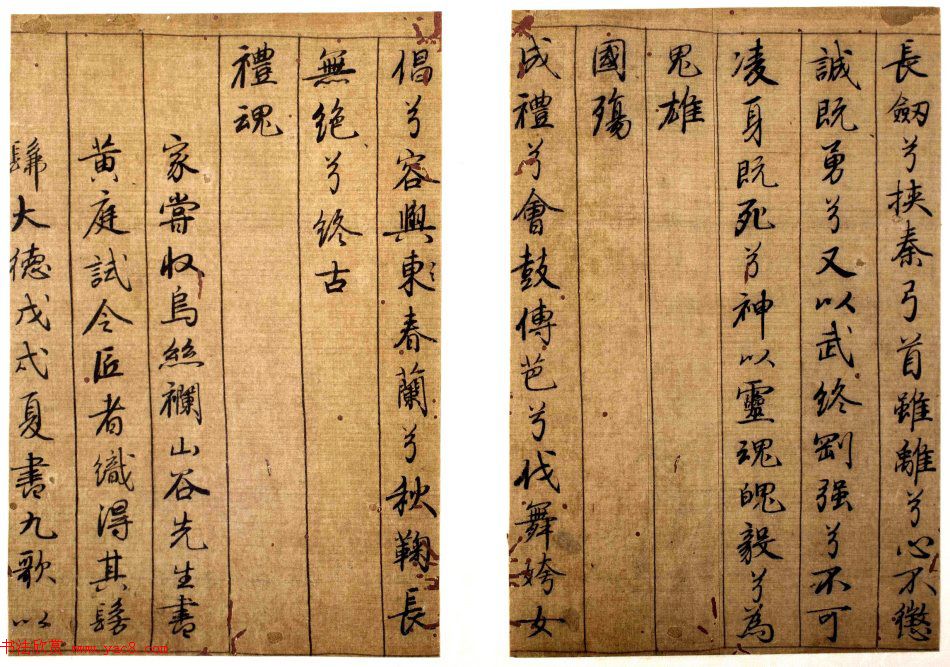 長劒兮挾秦弓首雖離兮心不懲
誠既勇兮又以武終剛强兮不可
凌身既死兮神以靈魂魄毅兮為
鬼雄
國殤
成禮兮會鼓傳芭兮代舞姱女
倡兮容與東春蘭兮秋鞠長
無絶兮終古
禮魂
家嘗收烏絲襴山谷先生書
黄庭試令匠者織得其髣
髴大德戊戌夏書九歌以
书法欣赏 www.yac8.com